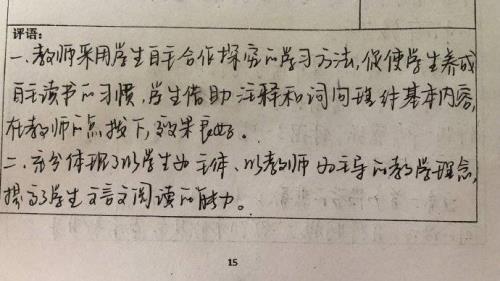 评语:
一.教师采用学生自主合作探究的学习方法,促使学生养成
自主读书的习惯,学生借助注释和词句理解基本内容,
在教师的点拨下,效果良好.
二.充分体现了以学生为主体、以教师为主导的教学理念,
提高了学生文言文阅读的能力。
15